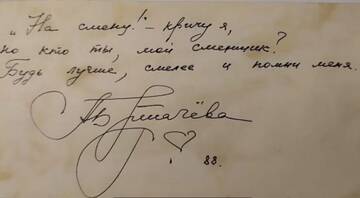 „На смену!“ – кричу я,
но кто ты, мой сменщик?
Будь лучше, смелее и помни меня.
88.